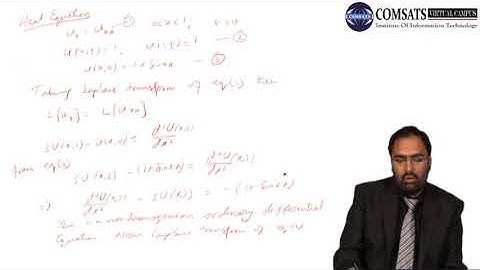 Heat Equation
u_t = u_xx —① 0<x<1, t>0
u(0,t)=1, u(1,t)=1 —②
u(x,0)=1+Sinπx —③
Taking Laplace transform of eq(1) then
L[u_t] = L[u_xx]
sU(x,s)-u(x,0) = d²U(x,s)/dx²
from eq(3)
sU(x,s) - (1+Sinπx) = d²U(x,s)/dx²
⇒ d²U(x,s)/dx² - sU(x,s) = -(1+Sinπx)
non-homogeneous ordinary differential
Equation Now Laplace transform of eq(2)
COMSATS
VIRTUAL CAMPUS
Institute Of Information Technology